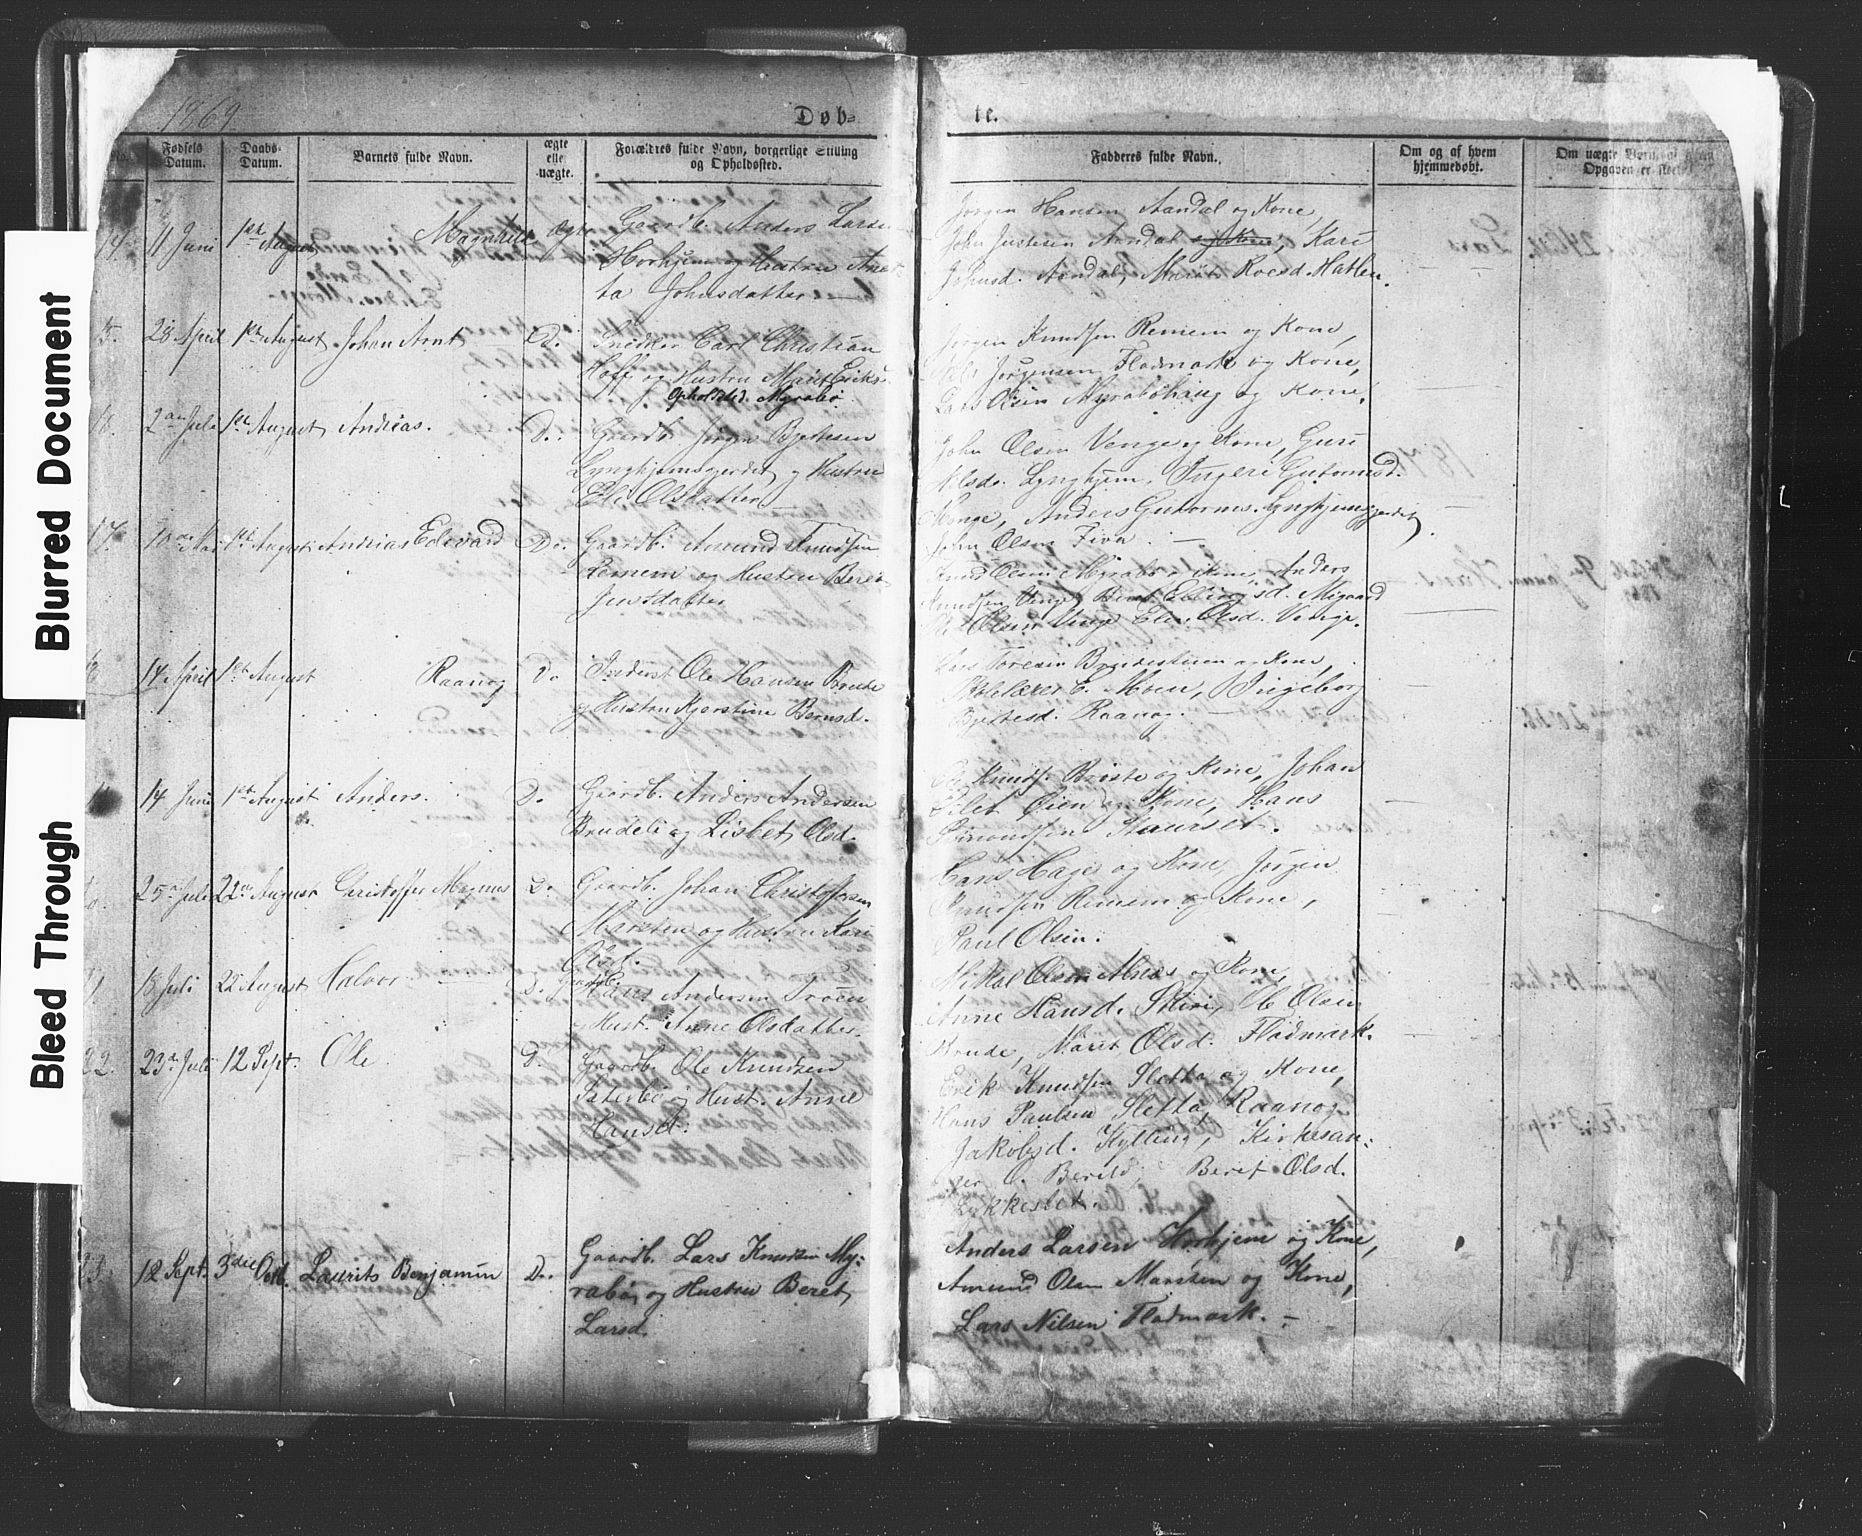 Blurred Document
Bleed Through
1869
Døb=
te.
No.
Fødsels Datum.
Daabs- Datum.
Barnets fulde Navn.
ægte elle uægte.
Forældres fulde Navn, borgerlige Stilling og Opholdssted.
Fadderes fulde Navn.
Om og af hvem hjemmedøbt.
Om uægte Børn
Opgaven er
14. 11 Juni 1ste August Magnhild ægte Gaardb. Anders Larsen
Horhjem og Hustru Anet-
ta Johnsdatter
Jørgen Hansen Aandal og Kone,
John Justesen Aandal og Kone, Kari
Johnsd. Aandal, Marit Roesd. Hatlen.
15. 28 April 1ste August Johan Arnt Do. Snedker Carl Christian
Hoff og Hustru Marit Eriks-
Opholdsted Myrabø
Jørgen Knudsen Remem og Kone,
Nils Jørgensen Fladmark og Kone,
Lars Olsen Myrabøhaug og Kone.
16. 2den Juli 1ste August Andreas. Do. Gaardb. Jørgen Bjettesen
Lynghjemsgjerdet og Hustru
Eli Olsdatter
John Olsen Venge og Kone, Guri
Nilsd. Lynghjem, Ingeri Guttormsd.
Venge, Anders Guttormsen Lynghjemsgjerdet
John Olsen Fiva.
17. Mai 1ste August Andreas Edevard Do. Gaardb. Amund Knudsen
Remem og Hustru Beret
Jensdatter
Knud Olsen Myrabø og Kone, Anders
Knudsen Venge, Beret Ellingsd. Migaard
Ole Olsen Venge, Eli Olsd. Venge.
14 April 1ste August Raanog Do. Inderst Ole Hansen Brude
og Hustru Kjerstine Berntsd.
Lars Toresen og Kone,
Skolelærer E. Moen, Ingeborg
Bjettesd. Raanog.
14 Juni 1ste August Anders. Do. Gaardb. Anders Andersen
Brudeli og Lisbet Olsd.
Ole Knudsn. Brøste og Kone, Johan
Eilet Øien og Kone, Hans
Simonsen Staurset.
25de Juli 22de August Christoffer Magnus Do. Gaardb. Johan Christoffersen
Marsten og Hustru Kari
Olsd.
Hans Hage og Kone, Jørgen
Knudsen Remem og Kone,
Paul Olsen.
18 Juli 22 August Halvor Do. Gaardb.
Hans Andersen Troen
og Hust. Anne Olsdatter
Mikal Olsen Alnæs og Kone,
Anne Hansd. Skiri, Ole Olsen
Brude, Marit Olsd. Fladmark.
22. 23de Juli 12 Sept. Ole Do. Gaardb. Ole Knudsen
Sæterbø og Hust. Anne
Hansd.
Erik Knudsen Sletta og Kone,
Hans Paulsen Sletta, Raanog
Jakobsd. Kylling, Kirkesan-
ger O. Berild, Beret Olsd.
Lykkeslet.
23. 12 Sept. 3die Octb. Laurits Benjamin Do. Gaardb. Lars Knudsen My-
rabø, og Hustru Beret
Larsd.
Anders Larsen Horhjem og Kone,
Amund Olsen Marsten og Kone,
Lars Nilsen Fladmark.